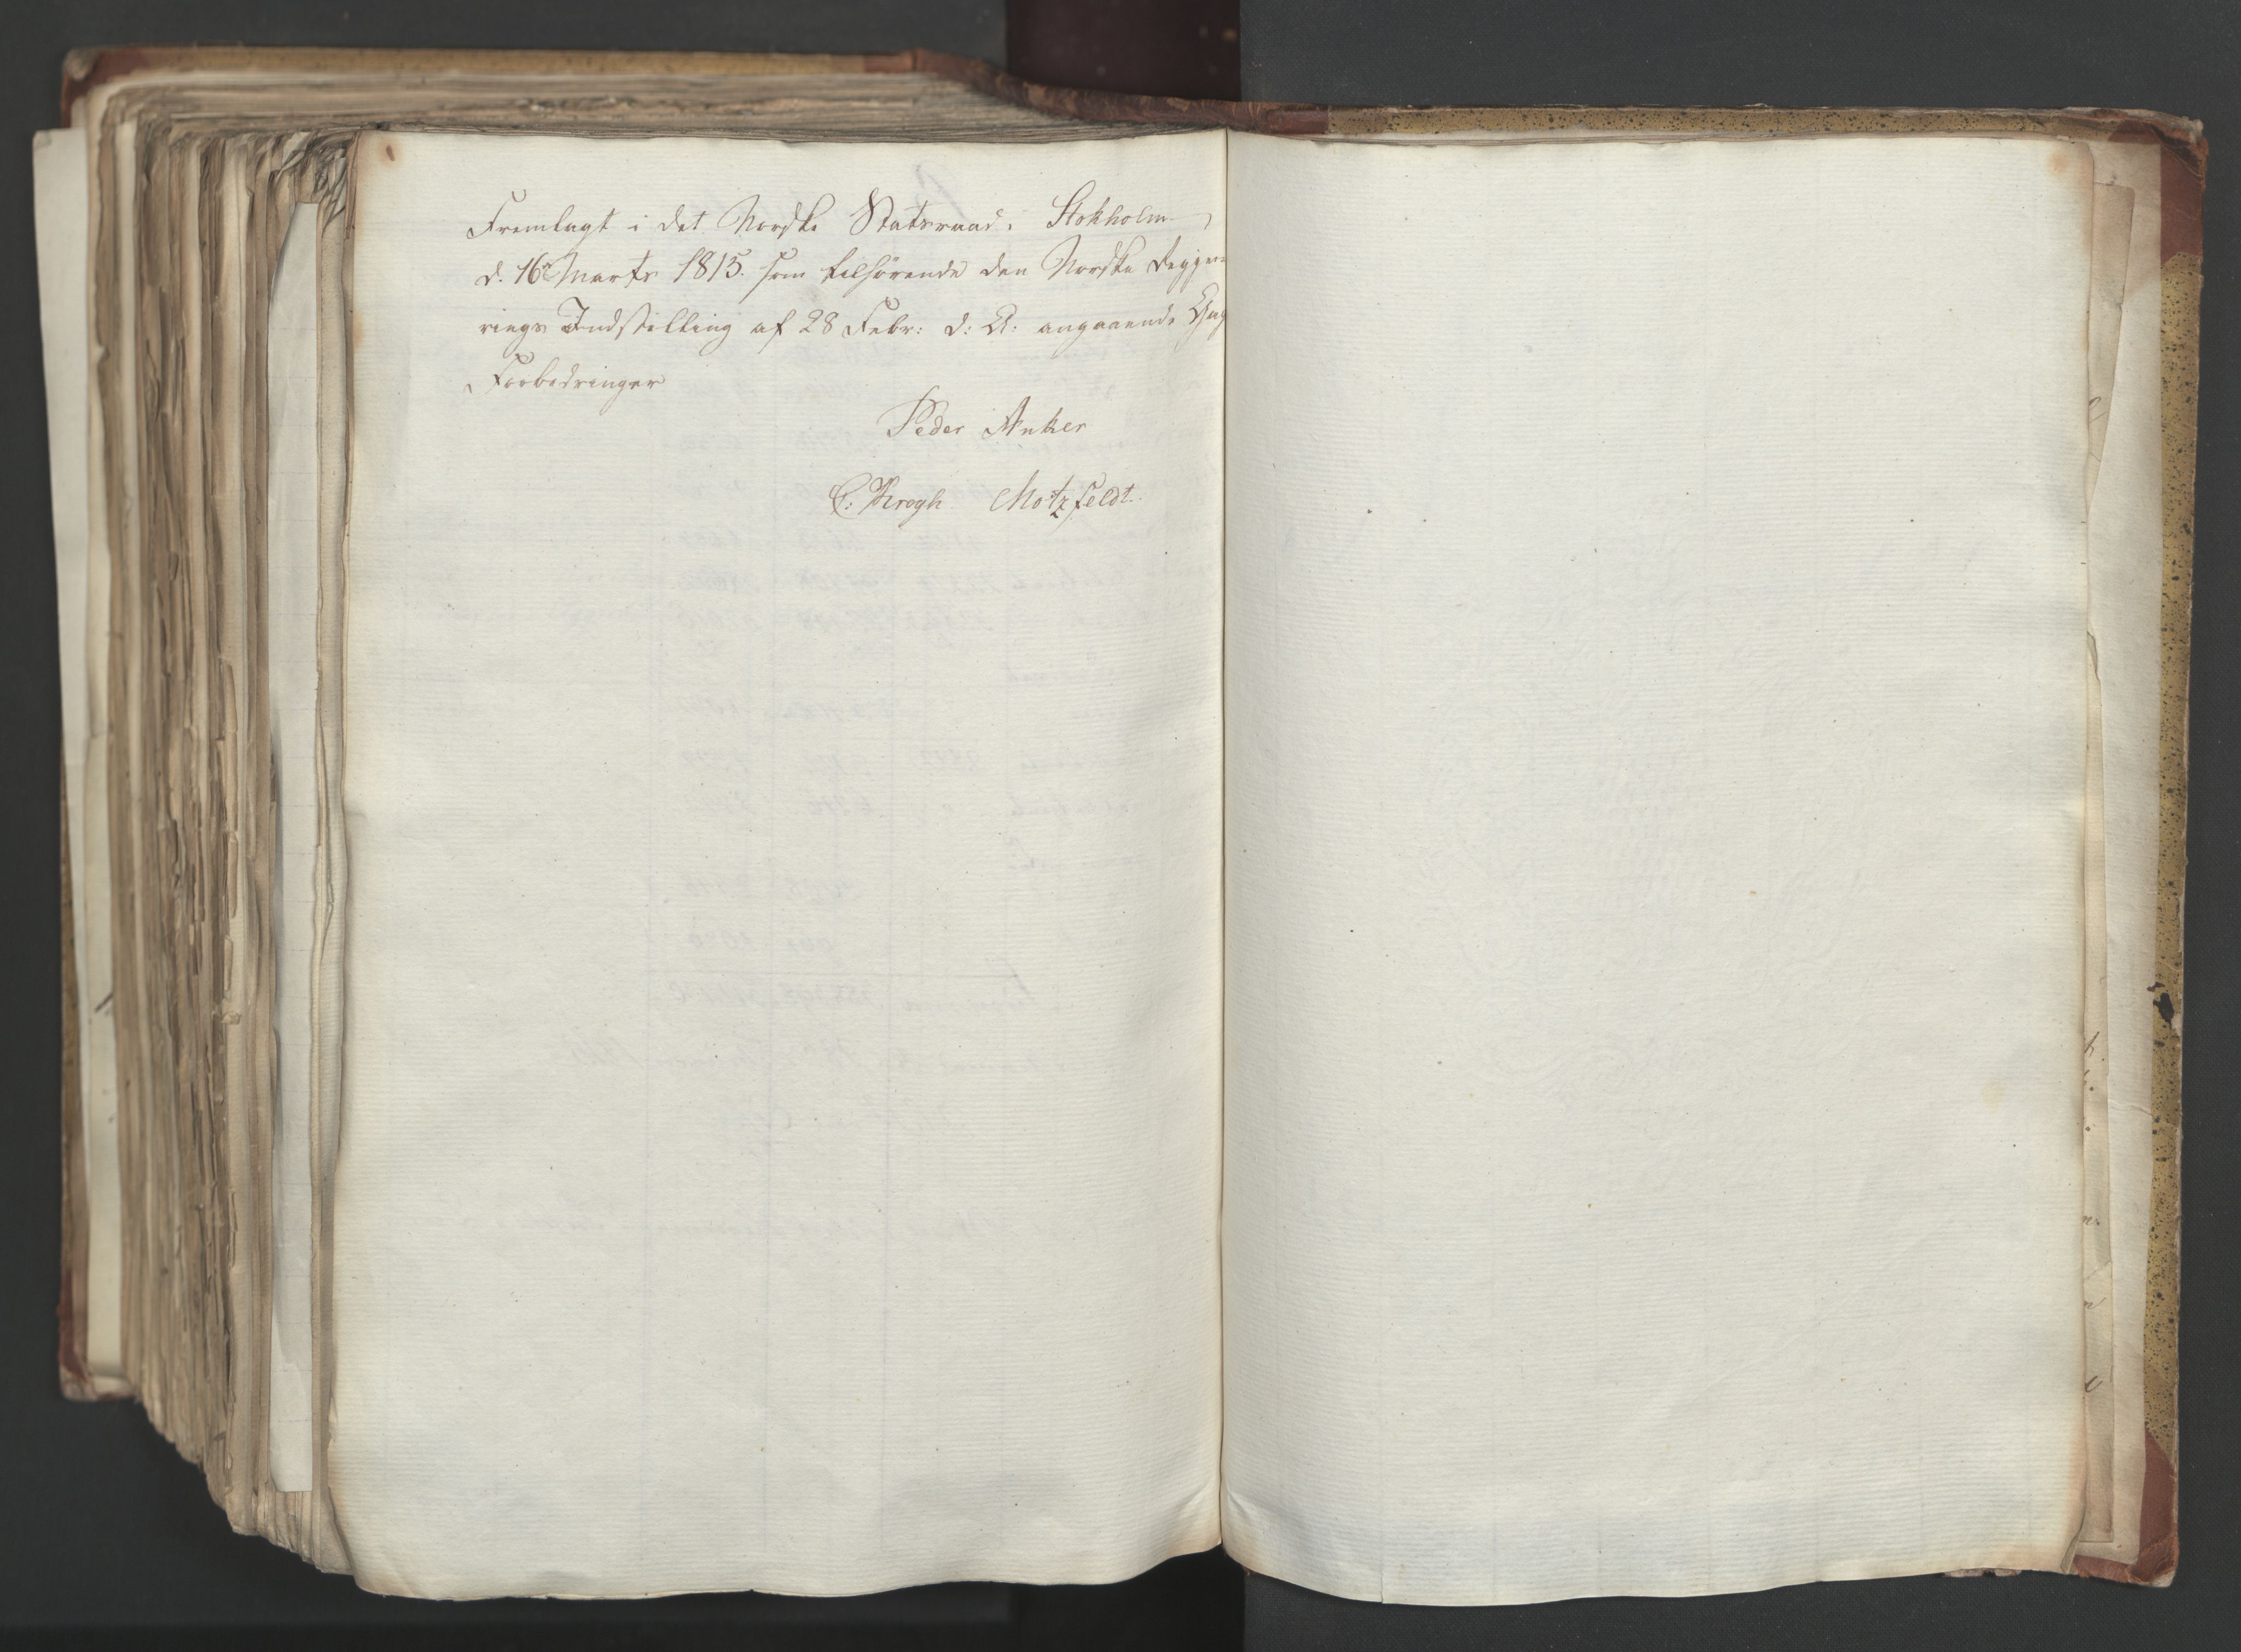 Fremlagt i det Norske Statsraad i Stokholm
d. 16 Marts 1815. som tilhörende den Norske Regje
rings Indstilling af 28 Febr: d: A: angaaende Gag
Forbedringer
Peder Anker
C: Krogh Motzfeldt.